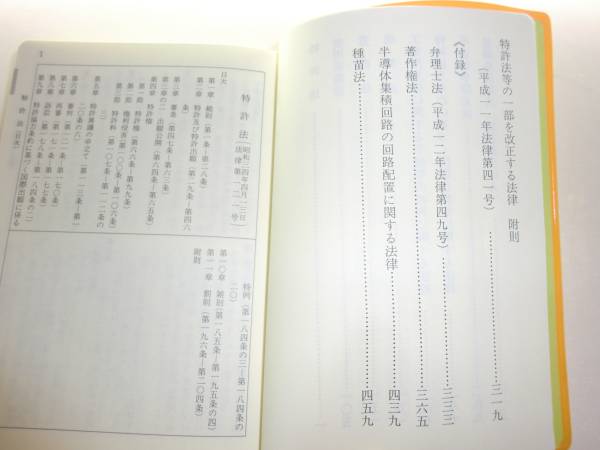 特許法等の一部を改正する法律　附則
（平成一一年法律第四一号）……三一九
《付録》
弁理士法（平成一二年法律第四九号）……三三三
著作権法……三六五
半導体集積回路の回路配置に関する法律……四三九
種苗法……四五九
特許法（昭和三四年四月一三日
法律第一二一号）
目次
第一章　総則（第一条―第二八条）
第二章　特許及び特許出願（第二九条―第四六
条）
第三章　審査（第四七条―第六三条）
第三章の二　出願公開（第六四条―第六五条）
第四章　特許権
第一節　特許権（第六六条―第九九条）
第二節　権利侵害（第一〇〇条―第一〇六条）
第三節　特許料（第一〇七条―第一一二条の
第五章　特許異議の申立て（第一一三条―第一
二〇条の六）
第六章
第七章　再審（第一七一条―第一七七条）
第八章　訴訟（第一七八条―
第九章　特許協力条約に基づく国際出願に係る
特例（第一八四条の三―第一八四条の
二〇）
第一〇章　雑則（第一八五条―第一九五条の四）
第一一章　罰則（第一九六条―第二〇四条）
附則
特許法（目次）
1